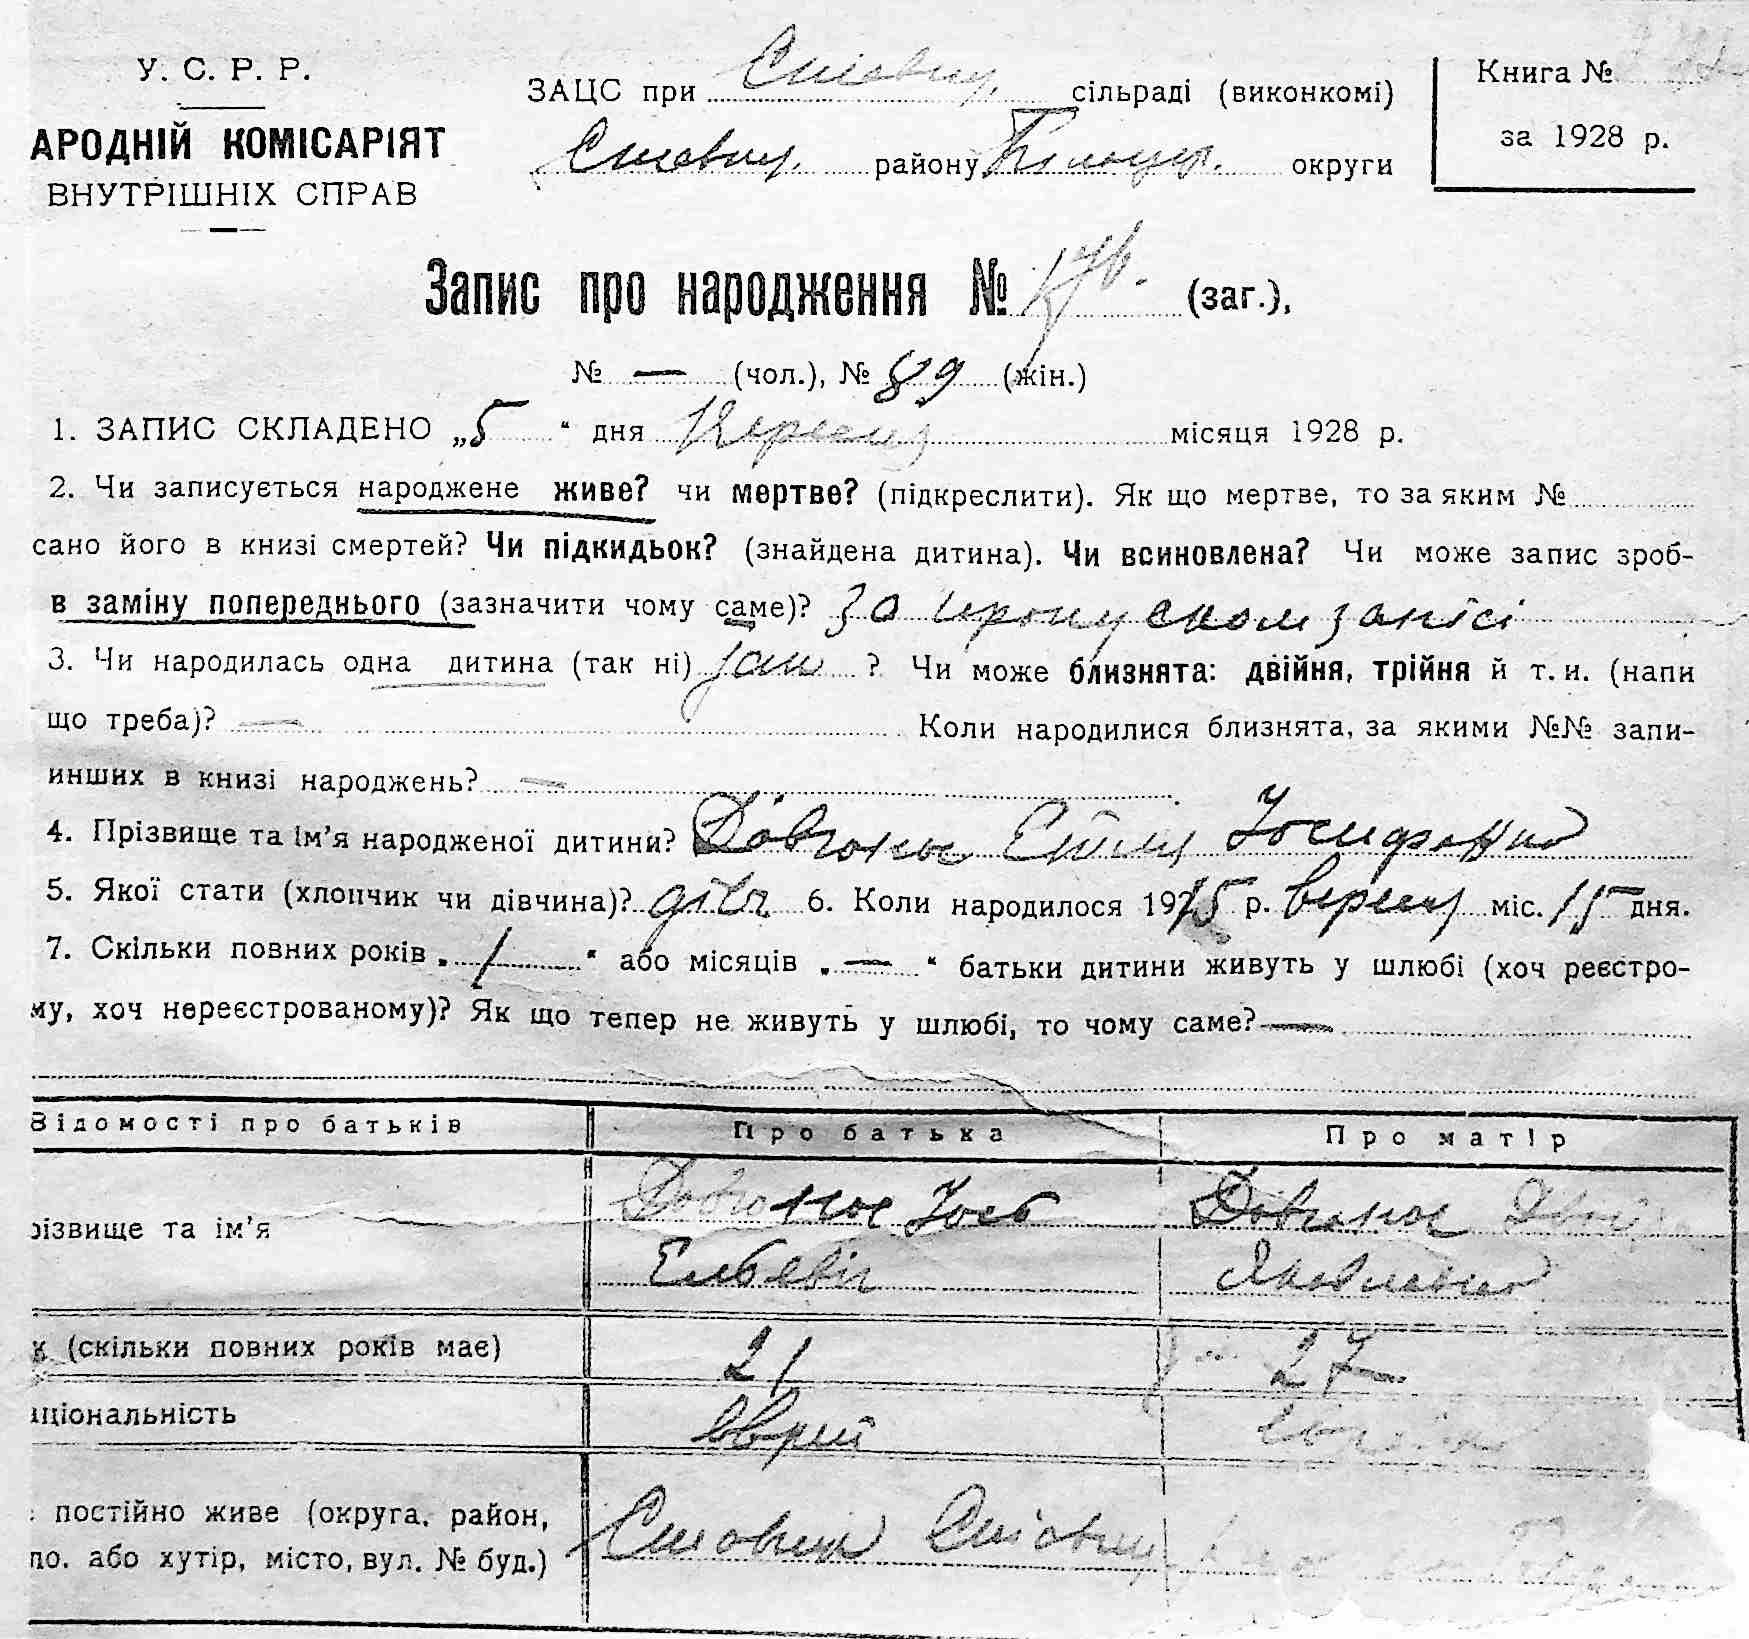 У. С. Р. Р.
АРОДНІЙ КОМІСАРІЯТ
ВНУТРІШНІХ СПРАВ
ЗАЦС при сільраді (виконкомі)
району округи
Книга №
за 1928 р.
Запис про народження № (заг.),
№ — (чол.), № 89 (жін.)
1. ЗАПИС СКЛАДЕНО „5 “ дня Вересня місяця 1928 р.
2. Чи записується народжене живе? чи мертве? (підкреслити). Як що мертве, то за яким №
сано його в книзі смертей? Чи підкидьок? (знайдена дитина). Чи всиновлена? Чи може запис зроб-
в заміну попереднього (зазначити чому саме)? За пропуском запісі
3. Чи народилась одна дитина (так ні) так ? Чи може близнята: двійня, трійня й т. и. (напи
що треба)? — Коли народилися близнята, за якими №№ запи-
инших в книзі народжень? —
4. Прізвище та ім’я народженої дитини? Довгонос
5. Якої стати (хлопчик чи дівчина)? дівч 6. Коли народилося 1925 р. вересня міс. 15 дня.
7. Скільки повних років „ 1 “ або місяців „ — “ батьки дитини живуть у шлюбі (хоч реєстро-
му, хоч нереєстрованому)? Як що тепер не живуть у шлюбі, то чому саме? —
Відомості про батьків Про батька Про матір
різвище та ім’я Довгонос Йось Довгонос
Ельевіч Яковлевна
к (скільки повних років має) 21 27
ціональність єврей
постійно живе (округа, район,
по. або хутір, місто, вул. № буд.)